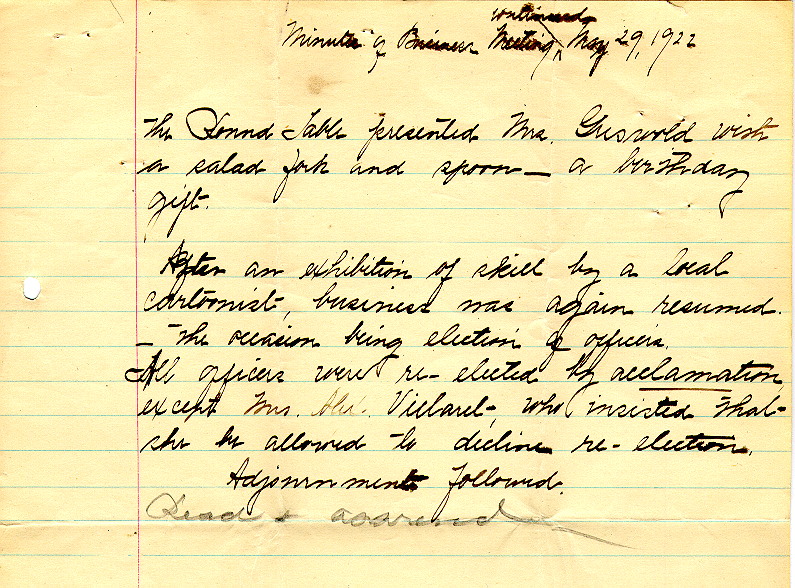 continued
Minutes of Business Meeting, May 29, 1922
the Round Table presented Mrs. Griswold with
a salad fork and spoon — a birthday
gift.
After an exhibition of skill by a local
cartoonist, business was again resumed.
— the occasion being election of officers.
All officers were re-elected by acclamation
except Mrs. Vielaret, who insisted that
she be allowed to decline re-election.
Adjournment followed.
Read &